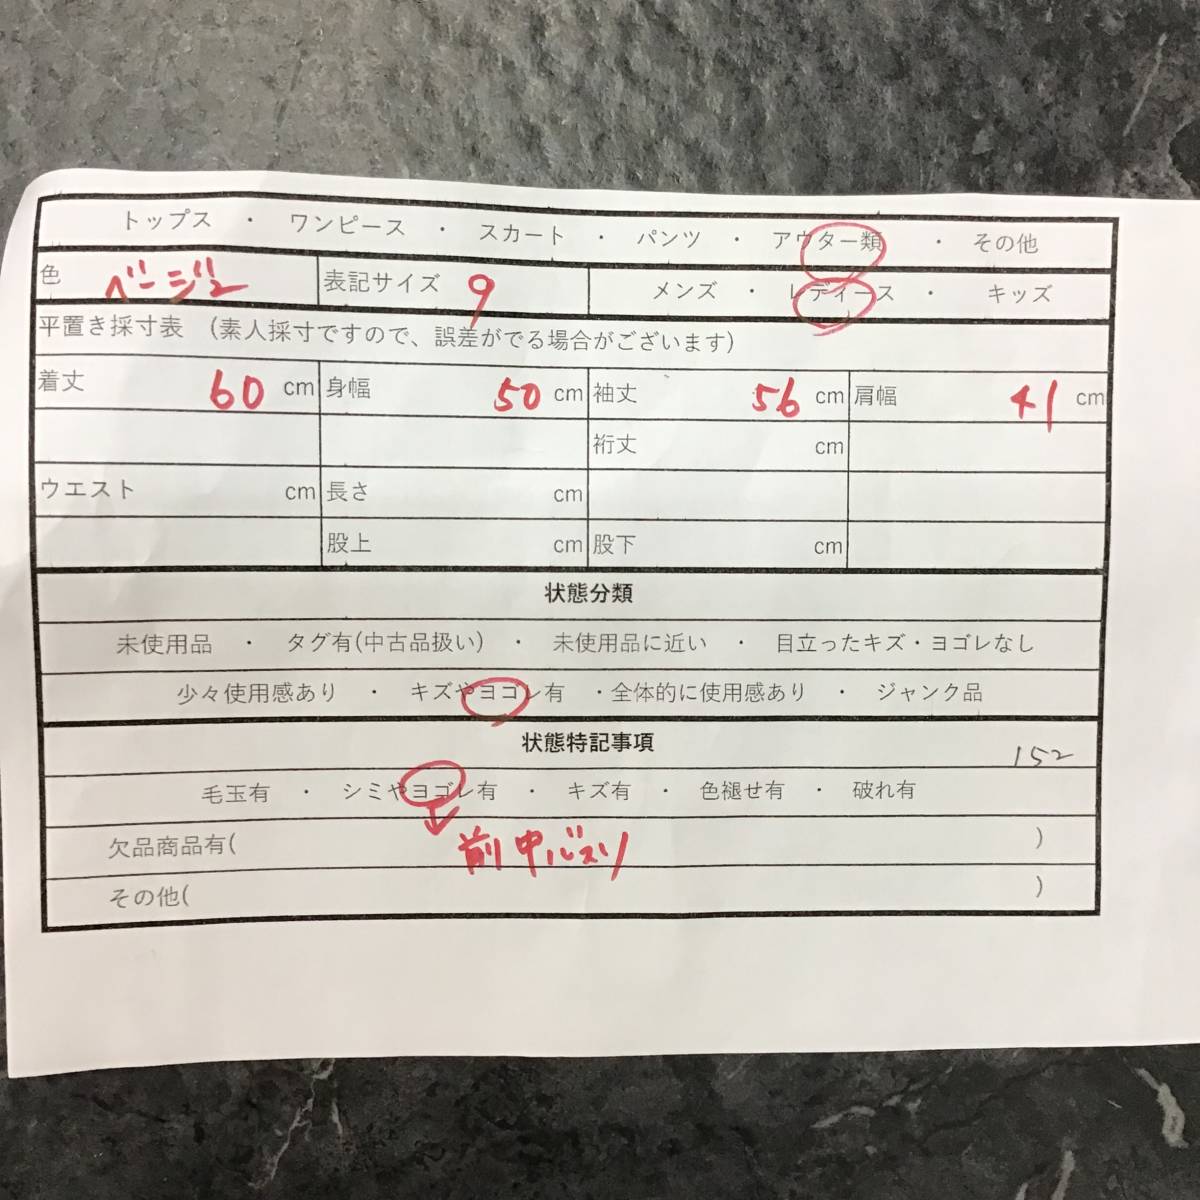 トップス ・ ワンピース ・ スカート ・ パンツ ・ アウター類 ・ その他
色 ベージュ 表記サイズ 9 メンズ ・ レディース ・ キッズ
平置き採寸表 (素人採寸ですので、誤差がでる場合がございます)
着丈 60 cm 身幅 50 cm 袖丈 56 cm 肩幅 41 cm
裄丈 cm
ウエスト cm 長さ cm
股上 cm 股下 cm
状態分類
未使用品 ・ タグ有(中古品扱い) ・ 未使用品に近い ・ 目立ったキズ・ヨゴレなし
少々使用感あり ・ キズやヨゴレ有 ・全体的に使用感あり ・ ジャンク品
状態特記事項
152
毛玉有 ・ シミやヨゴレ有 ・ キズ有 ・ 色褪せ有 ・ 破れ有
前中
欠品商品有( )
その他( )